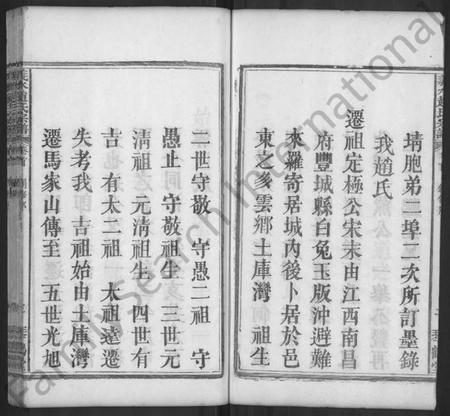 埥胞弟二埠二次所訂墨錄
我趙氏
遷祖定極公宋末由江西南昌
府豐城縣白兔玉版沖避難
來羅寄居城內後卜居於邑
東之多雲鄉土庫灣 祖生
二世守敬 守愚二祖 守
愚止 守敬祖生 三世元
清祖 元清祖生 四世有
吉 有太二祖 太祖遠遷
失考我 吉祖始由土庫灣
遷馬家山傳至 五世光旭
FamilySearch International